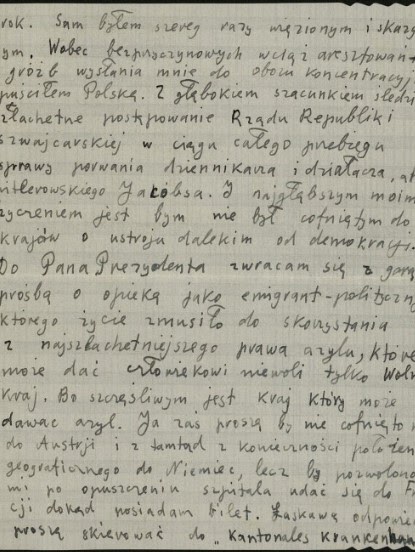 rok. Sam byłem szereg razy więzionym i skazy
ym. Wobec bezprzyczynowych wciąż aresztowań
gróźb wysłania mnie do obozu koncentracyj
puściłem Polskę. Z głębokiem szacunkiem śledzi
szlachetne postępowanie Rządu Republiki
Szwajcarskiej w ciągu całego przebiegu
sprawy porwania dziennikarza i działacza, at
hitlerowskiego Jacobsa. I najgłębszym moim
życzeniem jest bym nie był cofniętym do
krajów o ustroju dalekim od demokracji.
Do Pana Prezydenta zwracam się z gorą
prośbą o opiekę jako emigrant-polityczny
którego życie zmusiło do skorzystania
z najszlachetniejszego prawa azylu, które
może dać człowiekowi niewoli tylko Woln
Kraj. Bo szczęśliwym jest kraj który może
dawać azyl. Ja zaś proszę by nie cofnięto m
do Austrji i z tamtąd z konieczności położen
geograficznego do Niemiec, lecz by pozwolono
mi po opuszczeniu szpitala udać się do F
cji dokąd posiadam bilet. Łaskawą odpowie
proszę skierować do „Kantonales Krankenhau